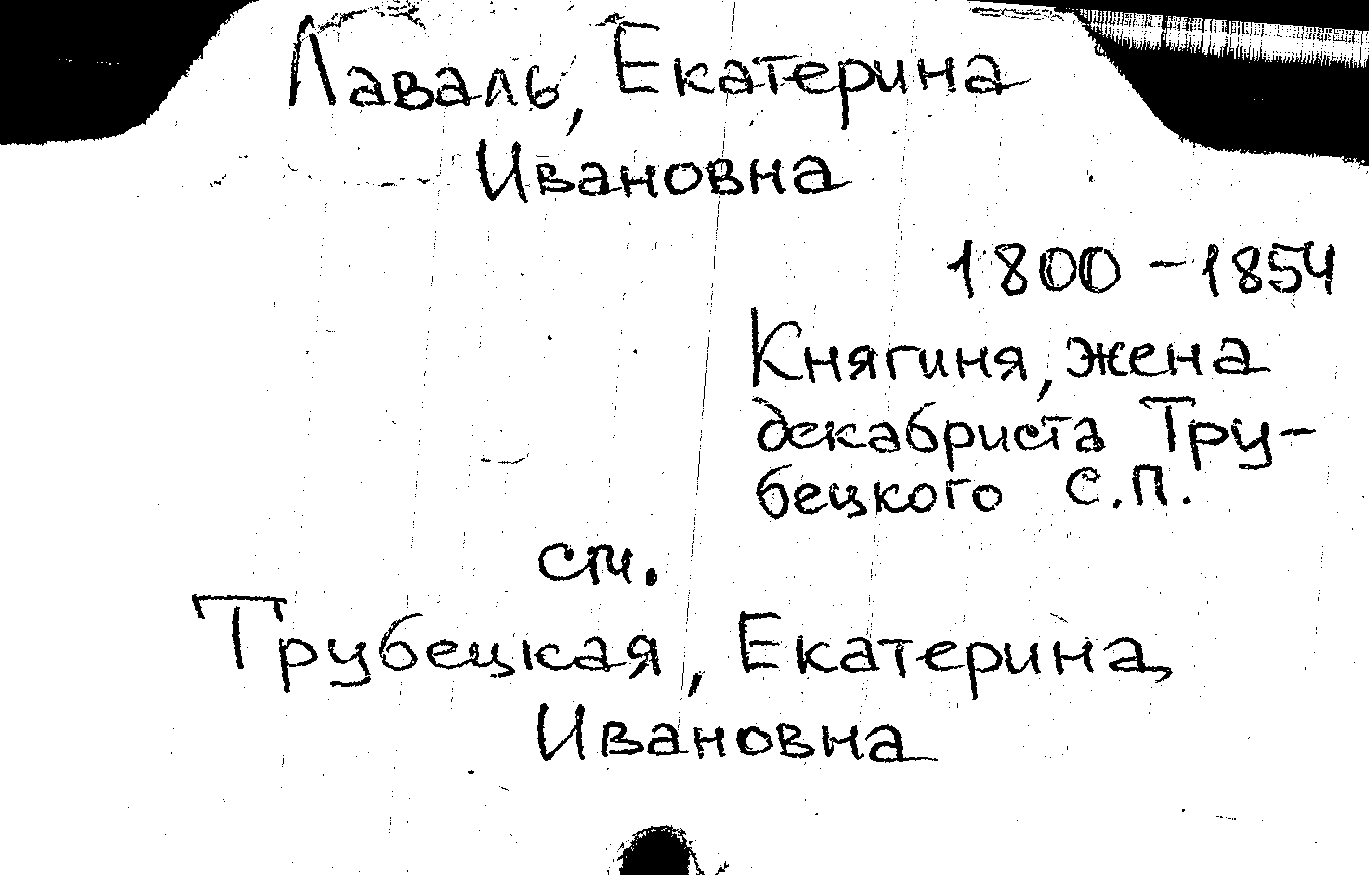 Лаваль, Екатерина
Ивановна
1800 - 1854
Княгиня, жена
декабриста Тру-
бецкого С.П.
см.
Трубецкая, Екатерина
Ивановна